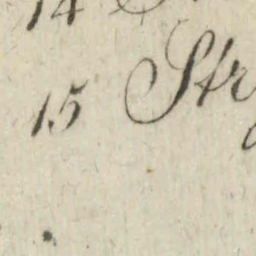 14
15 Str